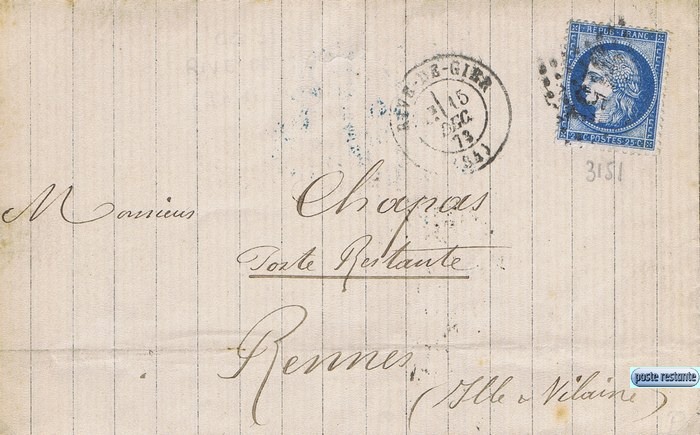 REPUB·FRANC·
25 C POSTES 25 C
RIVE-DE-GIER
15
DEC
73
(84)
3151
Monsieur Chapas
Poste Restante
Rennes
(Ille & Vilaine)
poste restante